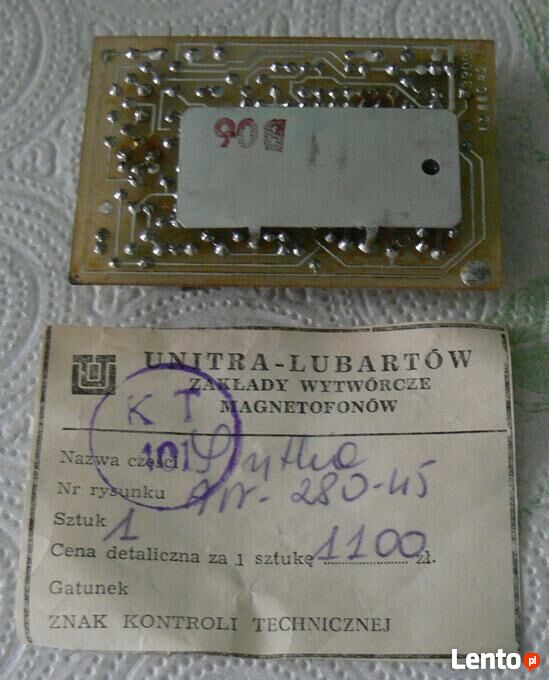 B06
UNITRA-LUBARTÓW
ZAKŁADY WYTWÓRCZE
MAGNETOFONÓW
K T
101
Nazwa części Płytka
Nr rysunku 280-45
Sztuk 1
Cena detaliczna za 1 sztukę 1100 zł.
Gatunek
ZNAK KONTROLI TECHNICZNEJ
Lento.pl